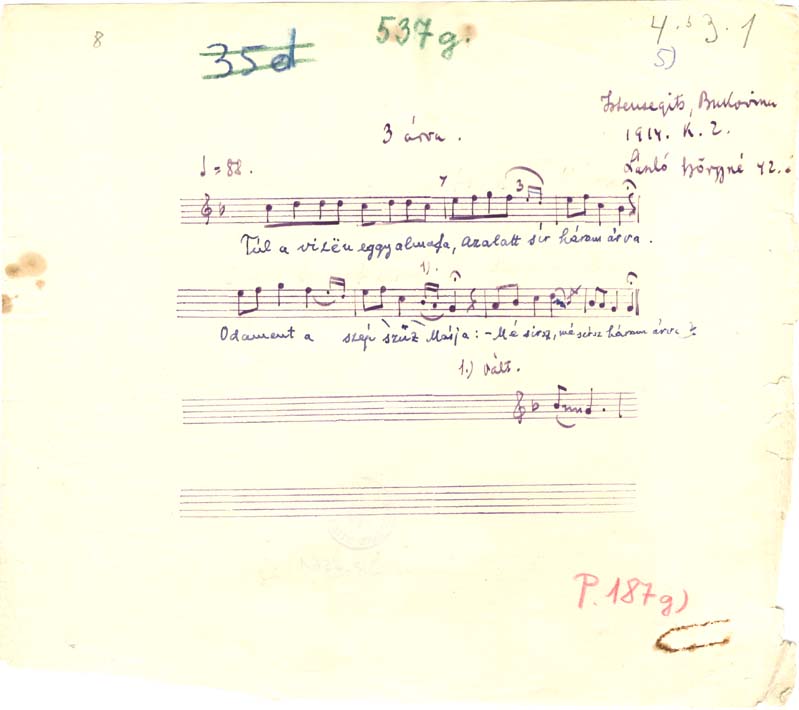 8
35d
537g.
4. 3. 1
5)
Istensegits, Bukovina
3 árva.
1914. K. Z.
László Györgyné 42.
♩=88.
3
Túl a vizën eggy almafa, Azalatt sír három árva.
1).
Odament a szép szűz Márja: - Mé sírsz, mé sírsz három árva?
1.) vált.
P. 187g)